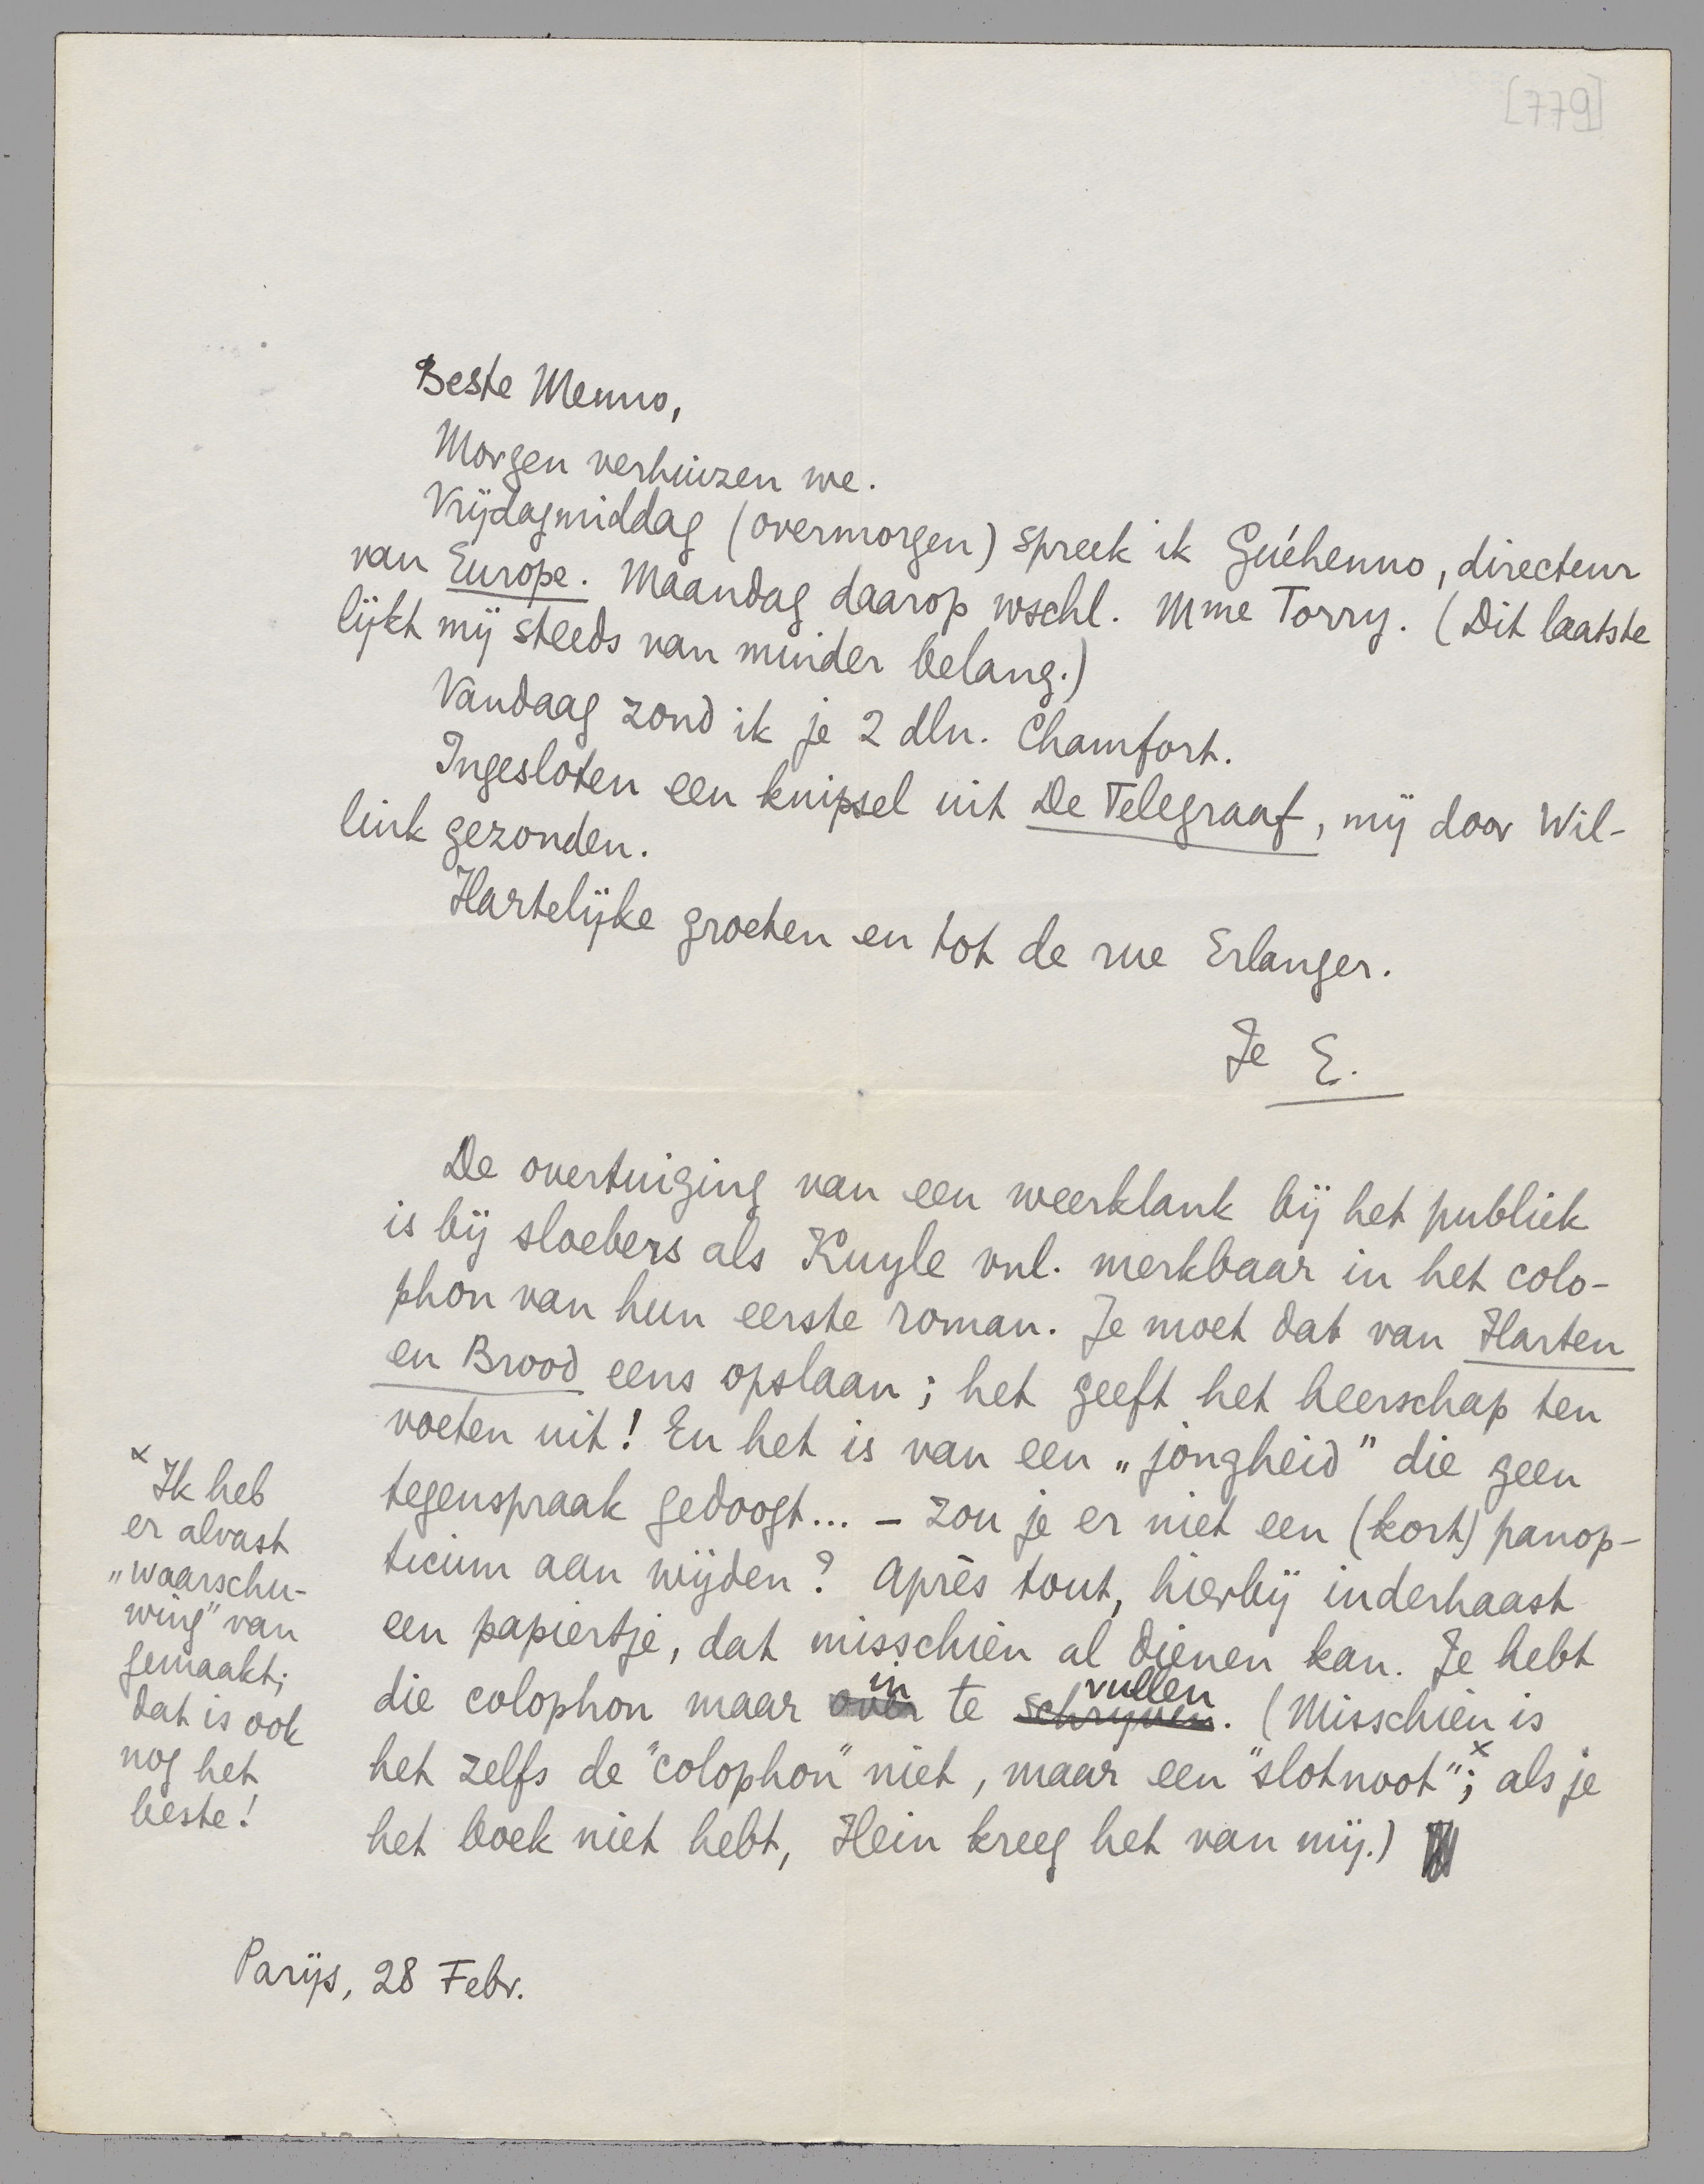 [779]
Beste Menno,
Morgen verhuizen we.
Vrijdagmiddag (overmorgen) spreek ik Guéhenno, directeur
van Europe. Maandag daarop wschl. Mme Torry. (Dit laatste
lijkt mij steeds van minder belang.)
Vandaag zond ik je 2 dln. Chamfort.
Ingesloten een knipsel uit De Telegraaf, mij door Wil-
link gezonden.
Hartelijke groeten en tot de rue Erlanger.
Je E.
De overtuiging van een weerklank bij het publiek
is bij sloebers als Kuyle vnl. merkbaar in het colo-
phon van hun eerste roman. Je moet dat van Harten
en Brood eens opslaan; het geeft het heerschap ten
voeten uit! En het is van een „jongheid” die geen
tegenspraak gedoogt... – Zou je er niet een (kort) panop-
ticum aan wijden? Après tout, hierbij inderhaast
een papiertje, dat misschien al dienen kan. Je hebt
die colophon maar over in te schrijven vullen. (Misschien is
het zelfs de "colophon" niet, maar een "slotnoot"x; als je
het boek niet hebt, Hein kreeg het van mij.)
x Ik heb
er alvast
„waarschu-
wing” van
gemaakt;
dat is ook
nog het
beste!
Parijs, 28 Febr.